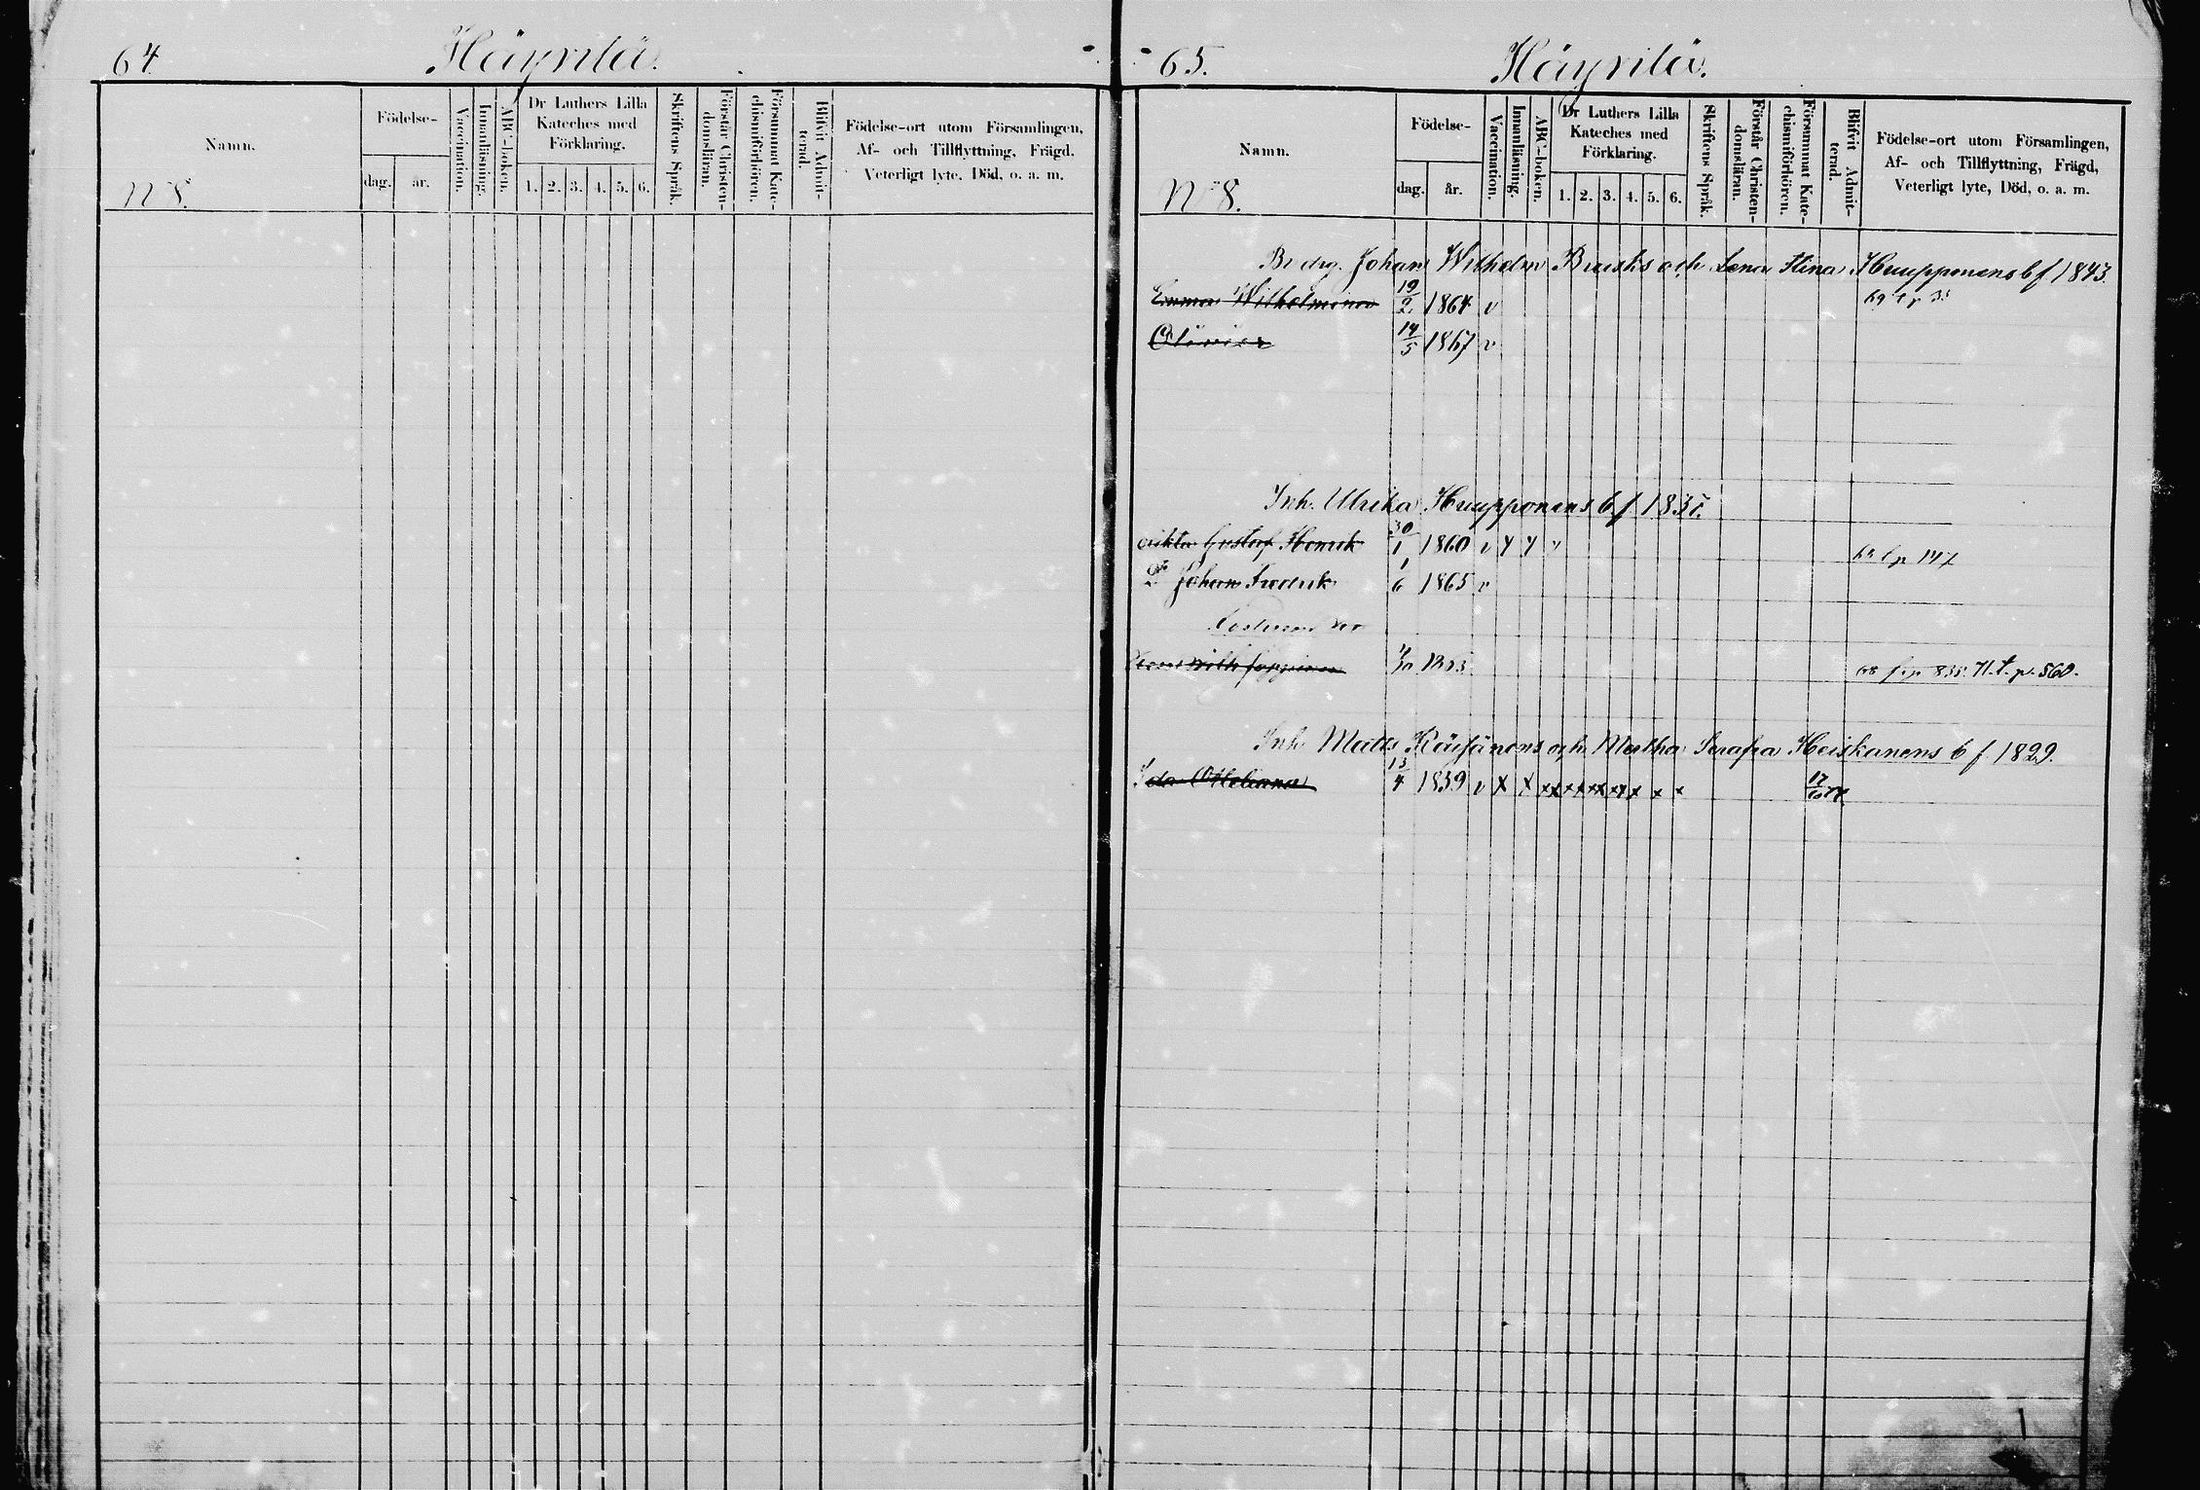 64. Häyrilä.
Namn.
Födelse-
dag. år.
Vaccination.
Innanläsning.
ABC-boken.
Dr Luthers Lilla Kateches med Förklaring.
1. 2. 3. 4. 5. 6.
Skriftens Språk.
Förstår Christendomsläran.
Försummat Katechismiförhören.
Blifvit Admitterad.
Födelse-ort utom Församlingen,
Af- och Tillflyttning, Frägd,
Veterligt lyte, Död, o. a. m.
N 8.
65. Häyrilä.
Namn.
Födelse-
dag. år.
Vaccination.
Innanläsning.
ABC-boken.
Dr Luthers Lilla Kateches med Förklaring.
1. 2. 3. 4. 5. 6.
Skriftens Språk.
Förstår Christendomsläran.
Försummat Katechismiförhören.
Blifvit Admitterad.
Födelse-ort utom Församlingen,
Af- och Tillflyttning, Frägd,
Veterligt lyte, Död, o. a. m.
N 8.
Johan Wilhelm och Lena Stina Huupponens b f 1843.
Emma Wilhelmina 19/2 1864 v
14/5 1867 v
Inh. Ulrika Huupponens b f 1835.
Gustaf Henrik 30/1 1860 v
Johan Fredrik 1/6 1865 v
71. t. p. 560.
Inh. Matts Räisänens och Martha Serafia Heiskanens b f. 1829.
Ida 13/4 1859 v x x x x x x x x x x